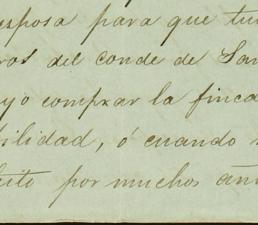 esposa para que
ros del conde de San
yo comprar la finca
bilidad, ó cuando
cito por muchos